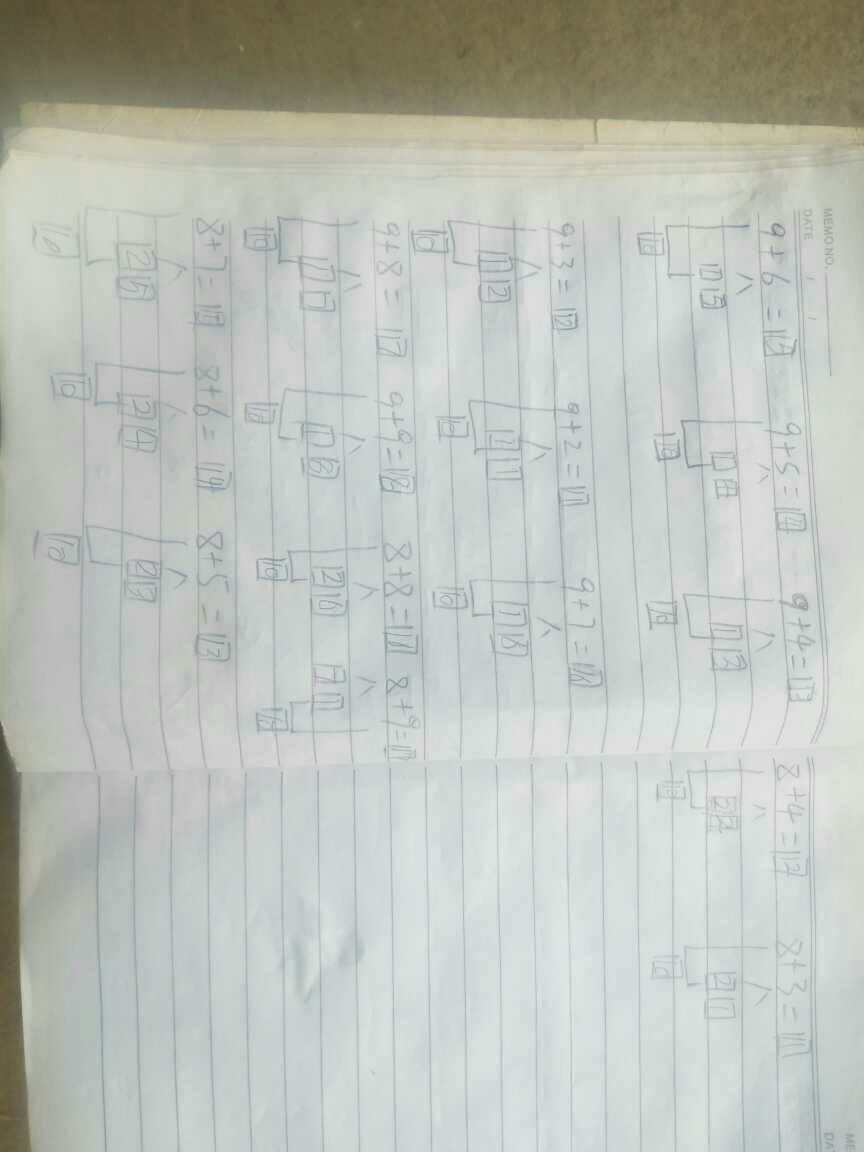 MEMO NO.
DATE / /
9+6=15 9+5=14 9+4=13
1 5 1 4 1 3
10 10 10
9+3=12 9+2=11 9+7=16
1 2 1 1 1 6
10 10 10
9+8=17 9+9=18 8+8=16 8+9=17
1 7 1 8 2 6 7 1
10 10 10 10
8+7=15 8+6=14 8+5=13
2 5 2 4 2 3
10 10 10
8+4=12 8+3=11
2 2 2 1
10 10